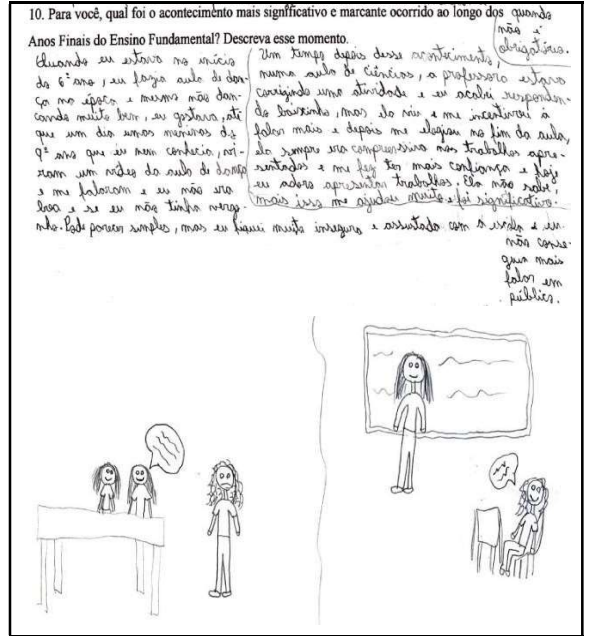 10. Para você, qual foi o acontecimento mais significativo e marcante ocorrido ao longo dos
Anos Finais do Ensino Fundamental? Descreva esse momento.
Quando eu estava no início
do 6º ano, eu fazia aula de dan-
ça na época e mesmo não dan-
çando muito bem, eu gostava, até
que um dia umas meninas do
9º ano que eu nem conhecia, vi-
ram um vídeo da aula de dança
e me falaram e eu não era
boa e se eu não tinha vergo-
nha. Pode parecer simples, mas eu fiquei muito insegura e assustada com a escola e eu
não conse-
guia mais
falar em
público.
Um tempo depois desse acontecimento,
numa aula de Ciências, a professora estava
corrigindo uma atividade e eu acabei responden-
do baixinho, mas ela viu e me incentivou a
falar mais e depois me elogiou no fim da aula,
ela sempre era compreensiva nos trabalhos apre-
sentados e me fez ter mais confiança e hoje
eu adoro apresentar trabalhos. Ela não sabe,
mais isso me ajudou muito e foi significativo.
quando
não é
obrigatório.